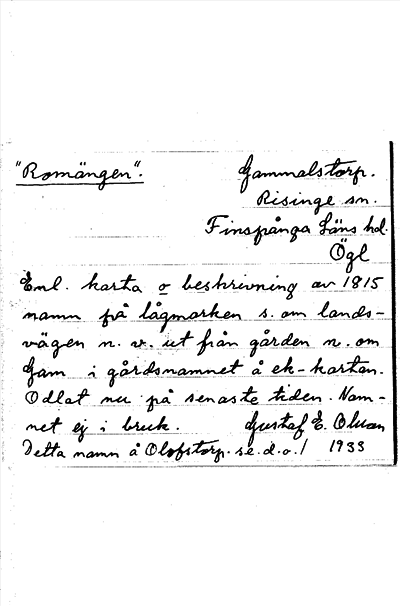 "Romängen".
Gammalstorp.
Risinge sn.
Finspånga Läns hd.
Ögl
Enl. karta o beskrivning av 1815
namn på lågmarken s. om lands-
vägen n. v. ut från gården n. om
Gam i gårdsnamnet å ek-kartan.
Odlat nu på senaste tiden. Nam-
net ej i bruk. Gustaf E. Olsson
Detta namn å Olofstorp. se. d. o. / 1933